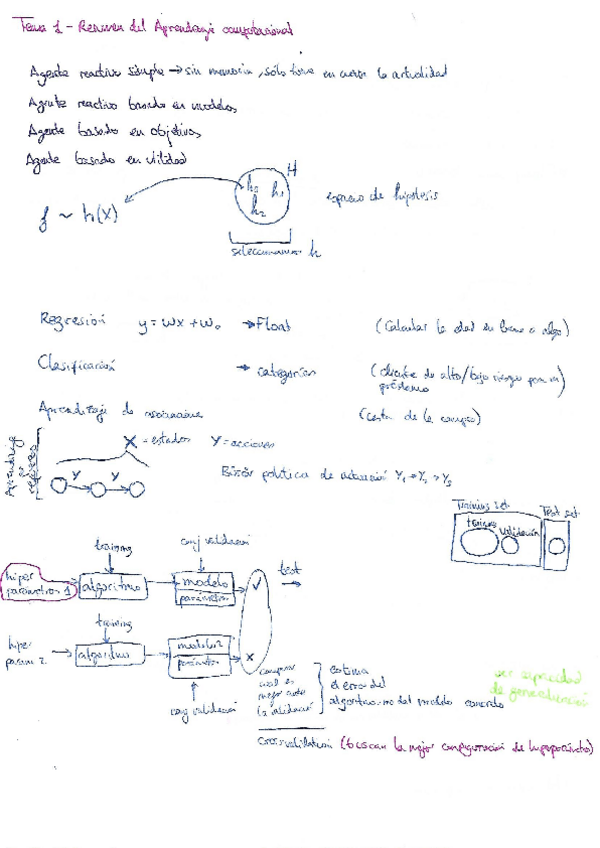 Tema 1 - Resumen del Aprendizaje computacional
Agente reactivo simple → sin memoria, sólo tiene en cuenta la actualidad
Agente reactivo basado en modelos
Agente basado en objetivos
Agente basado en utilidad
f ~ h(x)
H
h3 h1
h2
espacio de hipótesis
seleccionamos h
Regresión y = wx + w0 → Float (calcular la edad en base a algo)
Clasificación → categorías (cliente de alto/bajo riesgo para un préstamo)
Aprendizaje de asociaciones (cesta de la compra)
Aprendizaje
refuerzo
X = estados Y = acciones
Y Y
política de actuación Y1 → Y2 → Y3
Training set Test set
training validación
training conj validación test
hiper parámetros 1 algoritmo modelo parámetros ✓
training
hiper param 2 algoritmo modelo 2 parámetros x
conj validación
comparar cual es mejor
la validación
estima
el error del
algoritmo no del modelo concreto
ver capacidad
de generalización
cross validation (buscan la mejor configuración de hiperparámetros)